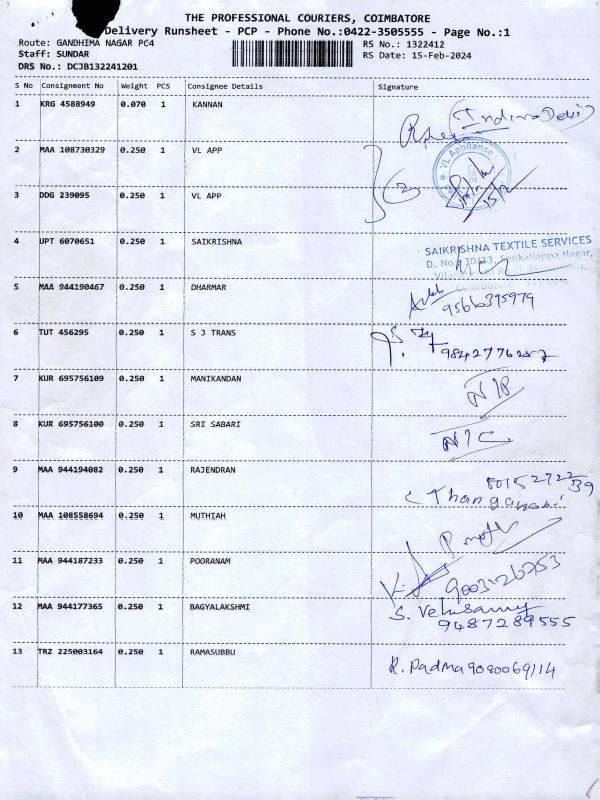 THE PROFESSIONAL COURIERS, COIMBATORE
Delivery Runsheet - PCP - Phone No.:0422-3505555 - Page No.:1
Route: GANDHIMA NAGAR PC4 RS No.: 1322412
Staff: SUNDAR RS Date: 15-Feb-2024
DRS No.: DCJB132241201
S No Consignment No Weight PCS Consignee Details Signature
1 KRG 4588949 0.070 1 KANNAN
2 MAA 108730329 0.250 1 VL APP
VL Appliance
15/2
3 DDG 239095 0.250 1 VL APP
4 UPT 6070651 0.250 1 SAIKRISHNA
SAIKRISHNA TEXTILE SERVICES
5 MAA 944190467 0.250 1 DHARMAR
9566395979
6 TUT 456295 0.250 1 S J TRANS
7 KUR 695756109 0.250 1 MANIKANDAN
8 KUR 695756100 0.250 1 SRI SABARI
N/C
9 MAA 944194082 0.250 1 RAJENDRAN
10 MAA 108558694 0.250 1 MUTHIAH
11 MAA 944187233 0.250 1 POORANAM
12 MAA 944177365 0.250 1 BAGYALAKSHMI
S. Velusamy
9487289555
13 TRZ 225003164 0.250 1 RAMASUBBU
R. Padma 9080069114